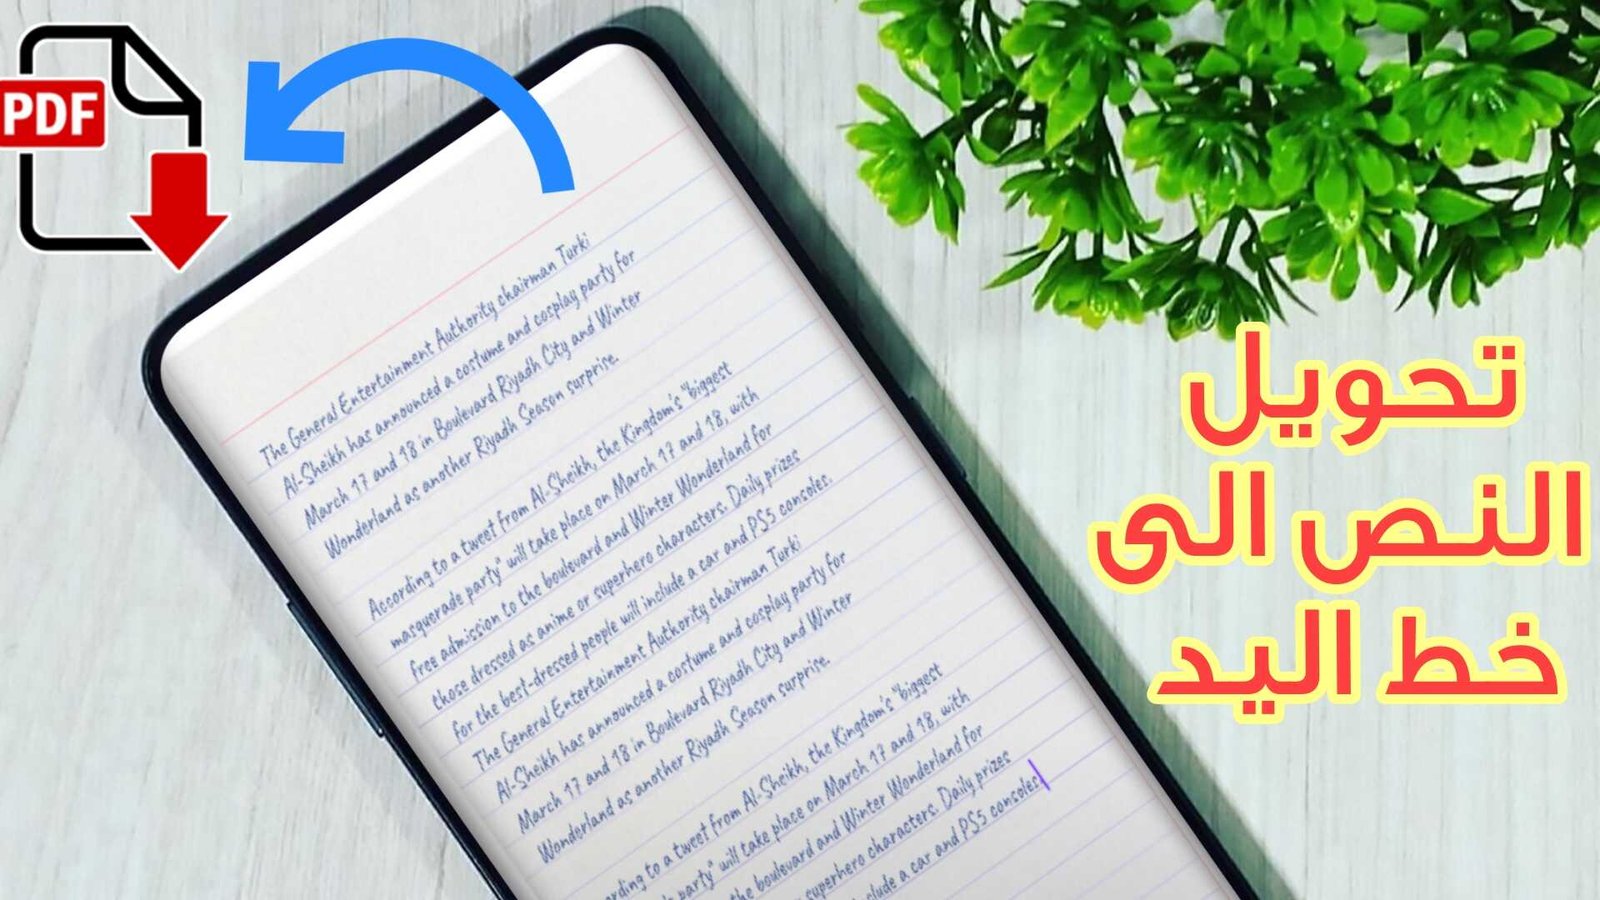 PDF
The General Entertainment Authority chairman Turki
Al-Sheikh has announced a costume and cosplay party for
March 17 and 18 in Boulevard Riyadh City and Winter
Wonderland as another Riyadh Season surprise.
According to a tweet from Al-Sheikh, the Kingdom's "biggest
masquerade party" will take place on March 17 and 18, with
free admission to the boulevard and Winter Wonderland for
those dressed as anime or superhero characters. Daily prizes
for the best-dressed people will include a car and PS5 consoles.
The General Entertainment Authority chairman Turki
Al-Sheikh has announced a costume and cosplay party for
March 17 and 18 in Boulevard Riyadh City and Winter
Wonderland as another Riyadh Season surprise.
to a tweet from Al-Sheikh, the Kingdom's "biggest
party" will take place on March 17 and 18, with
the boulevard and Winter Wonderland for
superhero characters. Daily prizes
a car and PS5 consoles
تحويل
النص الى
خط اليد